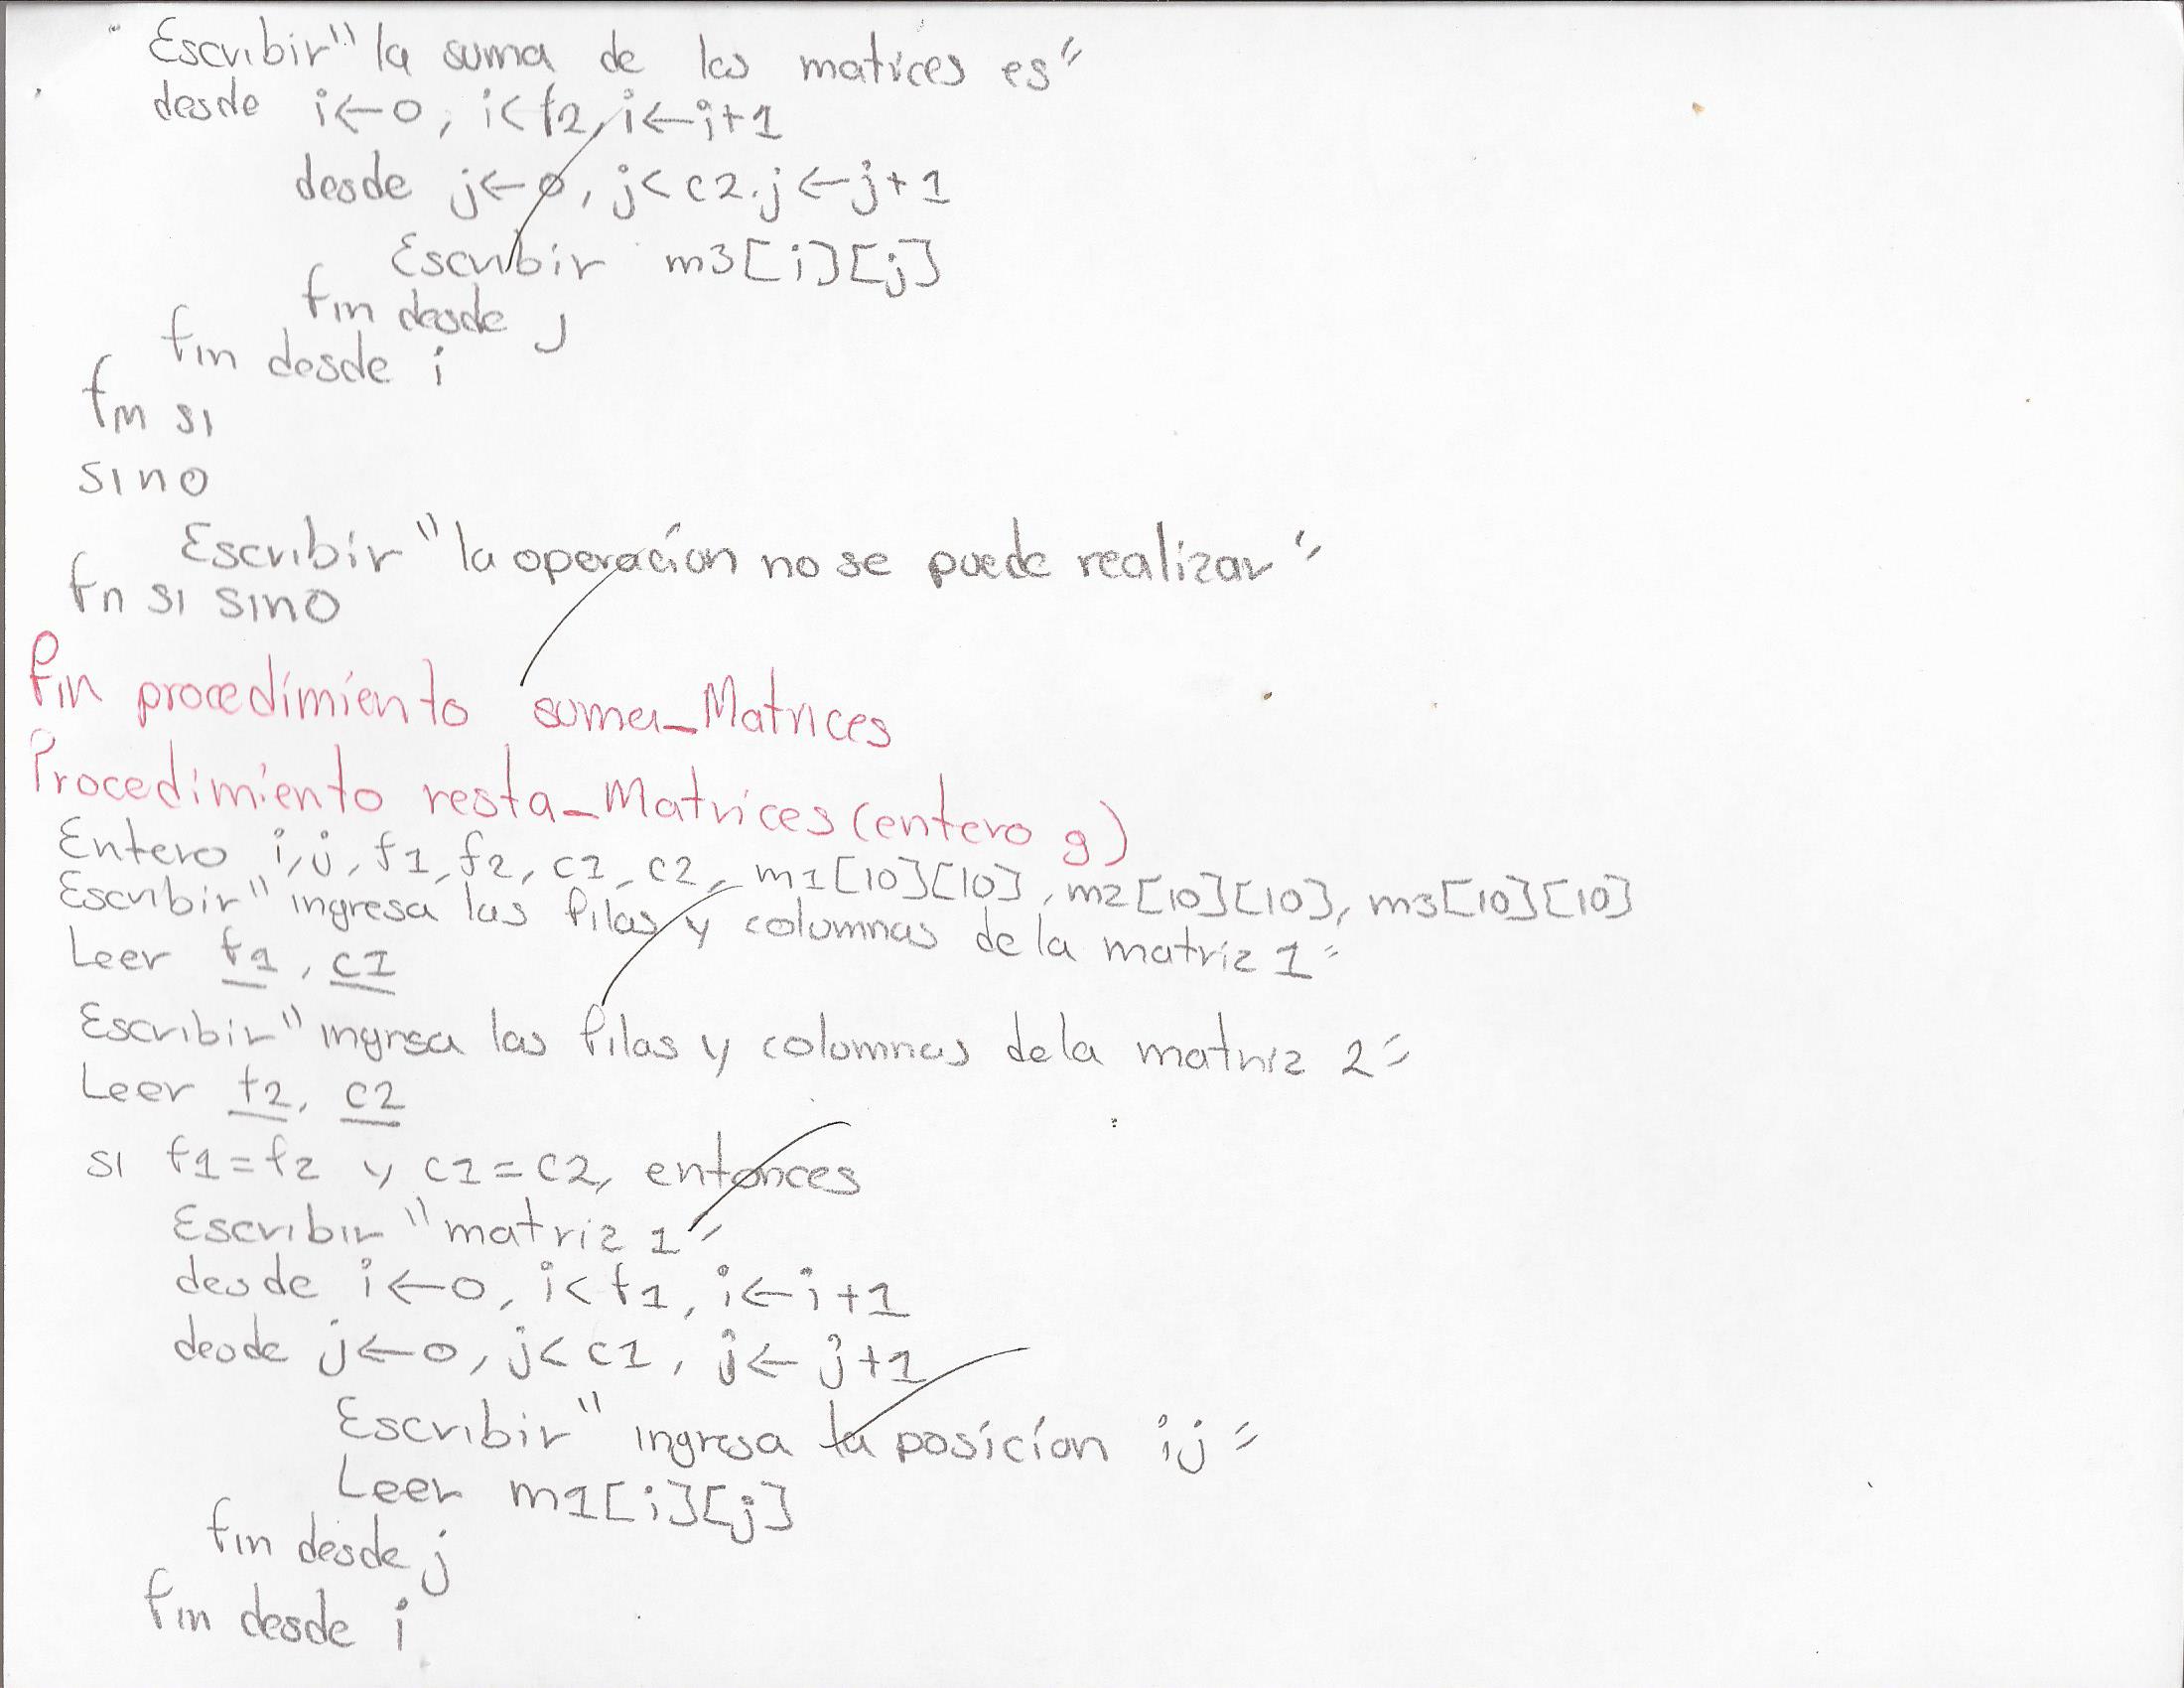 Escribir "la suma de las matrices es"
desde i←0, i<f2, i←i+1
desde j←0, j<c2, j←j+1
Escribir m3[i][j]
fin desde j
fin desde i
fin si
sino
Escribir "la operación no se puede realizar"
fn si sino
fin procedimiento suma_Matrices
Procedimiento resta_Matrices (entero g)
Entero i, j, f1, f2, c1, c2, m1[10][10], m2[10][10], m3[10][10]
Escribir "ingresa las filas y columnas de la matriz 1"
Leer f1, c1
Escribir "ingrsa las filas y columnas de la matriz 2"
Leer f2, c2
si f1=f2 y c1=c2, entonces
Escribir "matriz 1"
desde i←0, i<f1, i←i+1
desde j←0, j<c1, j←j+1
Escribir "ingresa la posición ij"
Leer m1[i][j]
fin desde j
fin desde i